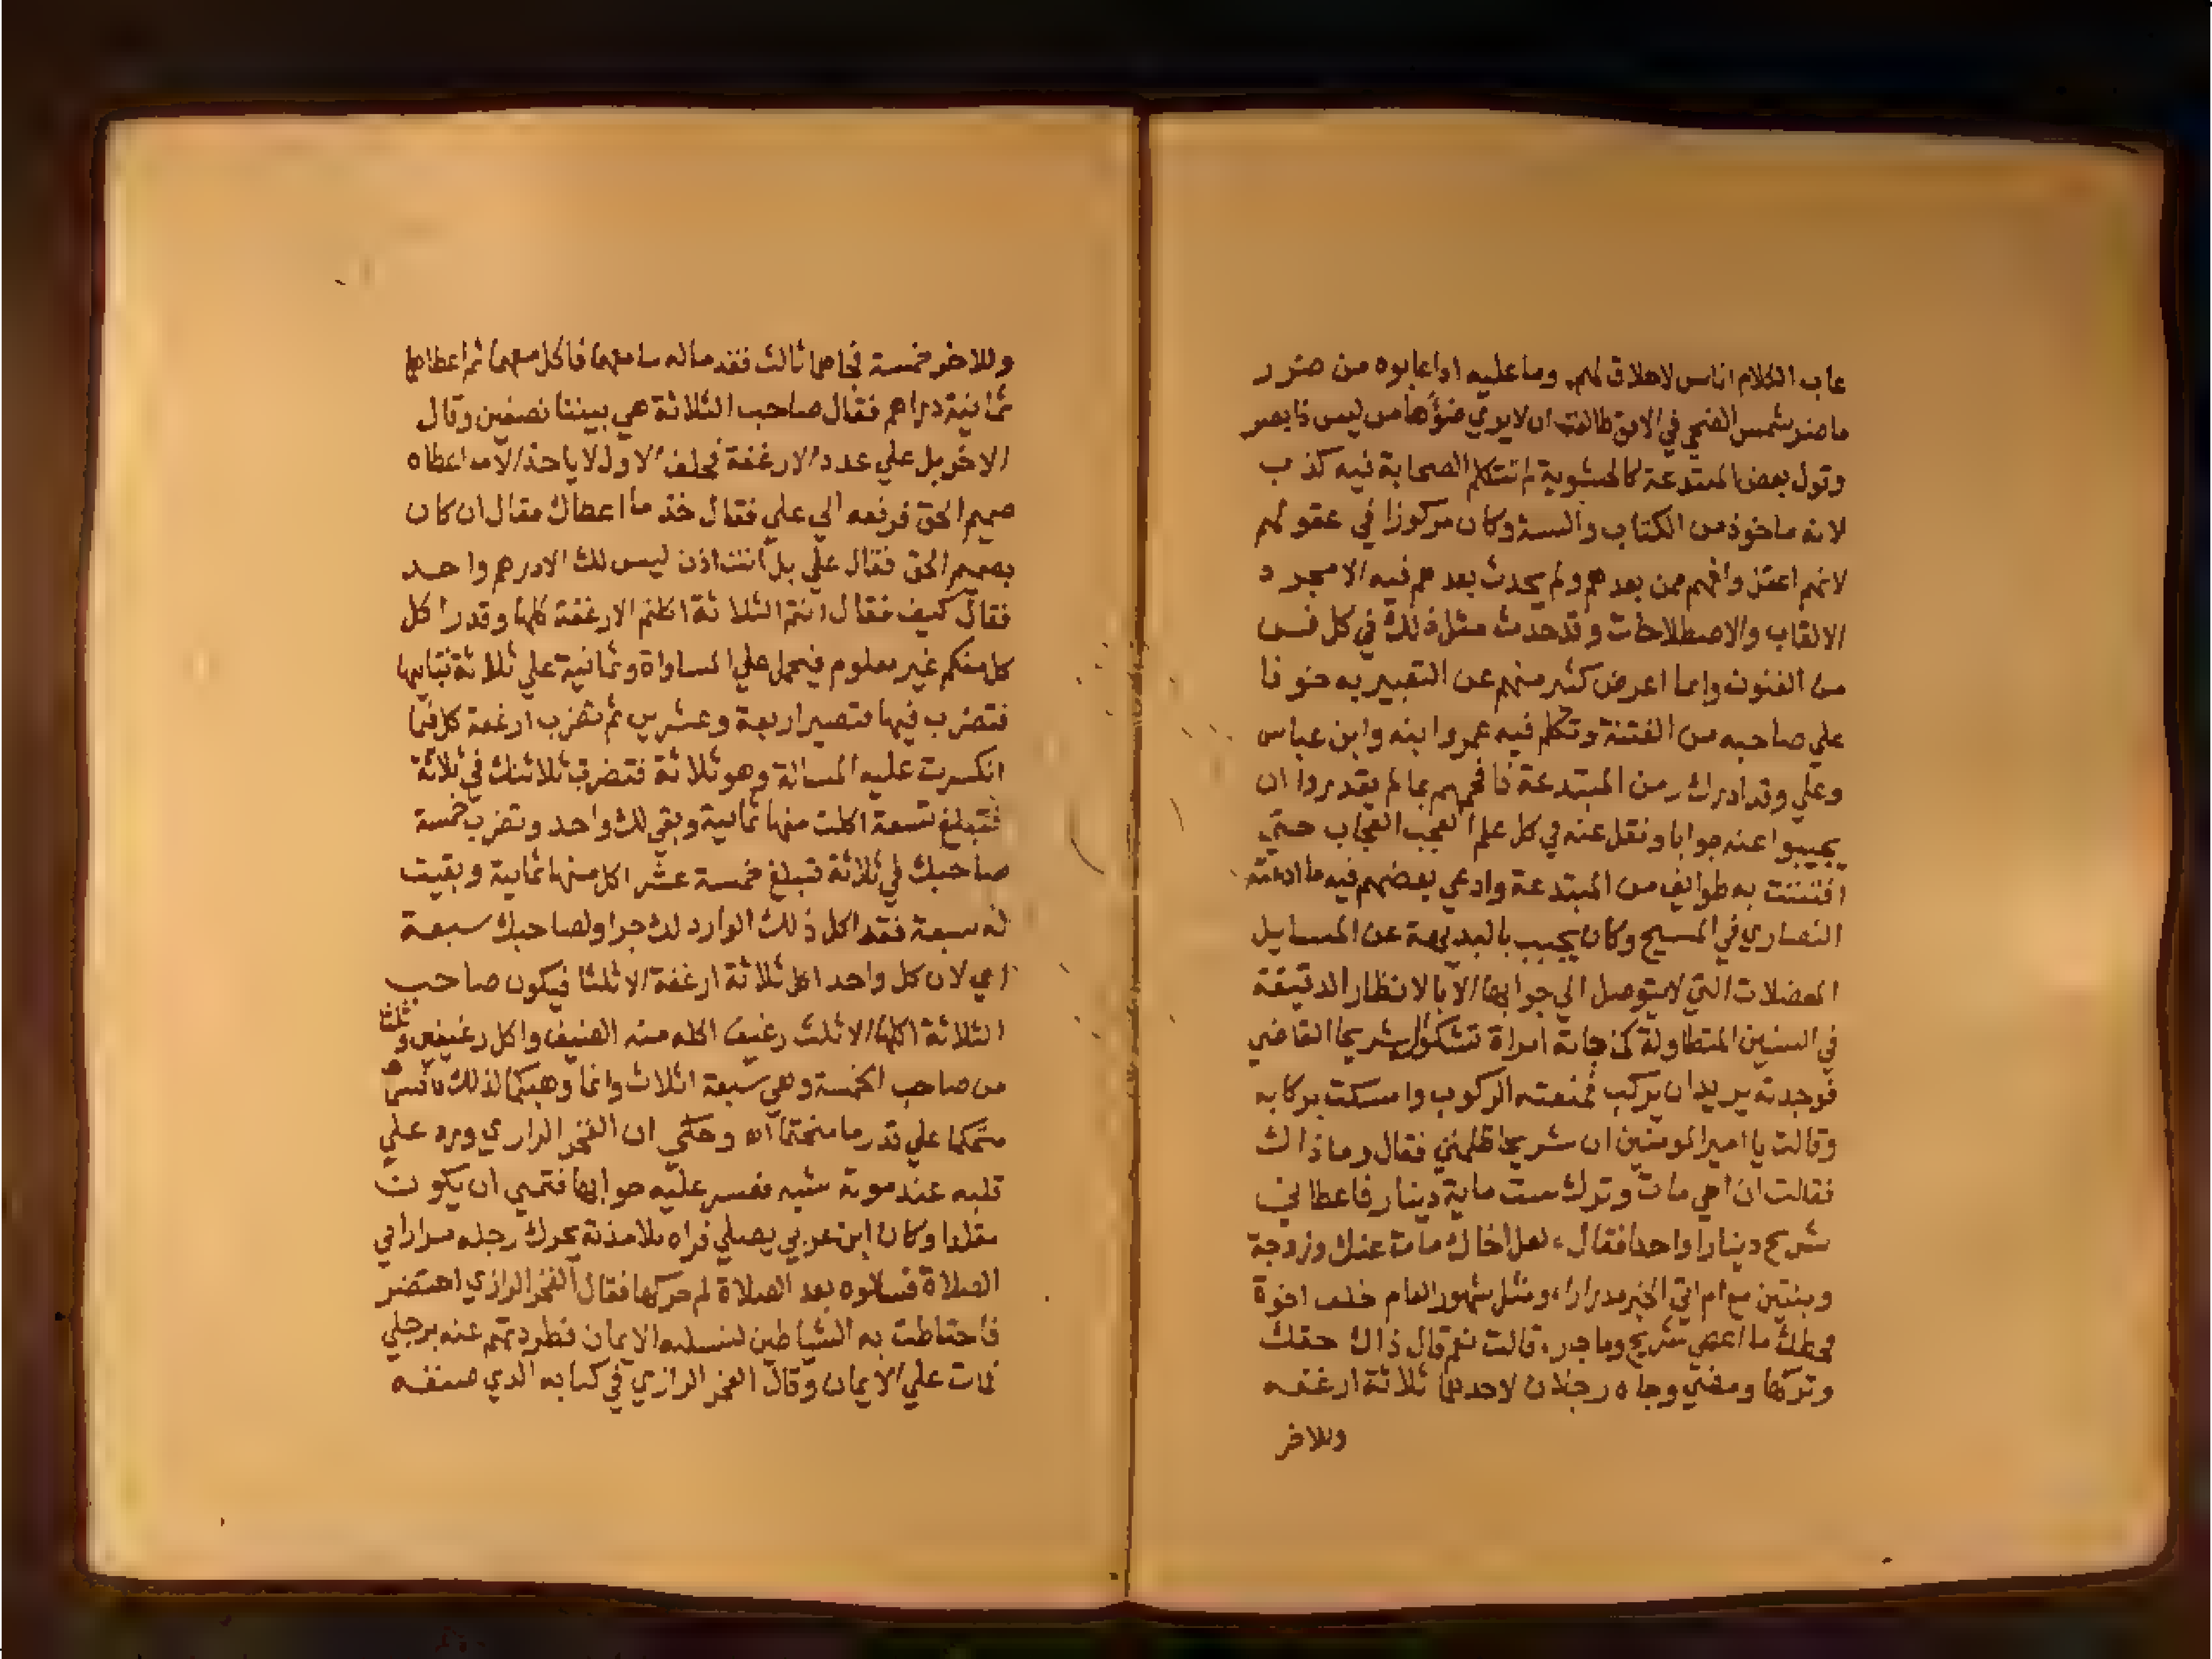 عاب الكلام اناس لاخلاق لهم وما عليه اذا عابوه من ضرر
ما ضر شمس الضحي في الافق طالعة ان لا يري ضؤها من ليس ذا بصر
وقول بعض المبتدعة كالحشوية لم تتكلم الصحابة فيه كذب
لانه ماخوذ من الكتاب والسنة وكان مركوزا في عقولهم
لانهم اعقل وافهم ممن بعدهم ولم يحدث بعدهم فيه الا مجرد
الالقاب والاصطلاحات وقد حدث مثل ذلك في كل فن
من الفنون وانما اعرض كثير منهم عن التعبير به خوفا
علي صاحبه من الفتنة وتكلم فيه عمر وابنه وابن عباس
وعلي وقد ادرك زمن المبتدعة فافحمهم بما لم يقدروا ان
يجيبوا عنه جوابا ونقل عنه في كل علم العجب العجاب حتي
افتتنت به طوايف من المبتدعة وادعي بعضهم فيه ما ادعته
النصاري في المسيح وكان يجيب بالبديهة عن المسايل
المعضلات التي لا يتوصل الي جوابها الا بالانظار الدقيقة
في السنين المتطاولة جاته امراة تشكوا شريحا القاضي
فوجدته يريد ان يركب فمنعته الركوب وامسكت بركابه
وقالت يا امير المومنين ان شريحا ظلمني فقال وما ذالك
فقالت ان اخي مات وترك ست ماية دينار فاعطاني
شريح دينارا واحدا فقال لعل اخاك مات عنك وزوجة
وبنتين مع ام اتي الخير مدرارا ومثل شهور العام خلف اخوة
فحظك ما اعطي شريح وما جر قالت نعم قال ذاك حقك
وتركها ومضي وجاه رجلان لاحدهما ثلاثة ارغفه
وللاخر
وللاخر خمسة فجاهما ثالث فقدماله سامنهما فاكل معهما ثم اعطاهما
ثمانية دراهم فقال صاحب الثلاثة هي بيننا نصفين وقال
الاخر بل علي عدد الارغفة فحلف الاول لا ياخذ الا ما اعطاه
صميم الحق فرفعه الي علي فقال خذ ما اعطاك فقال ان كان
بصميم الحق فقال علي بل انت اذن ليس لك الا درهم واحد
فقال كيف فقال انتم الثلاثة اكلتم الارغفة كلها وقدر اكل
كل منكم غير معلوم فيحمل علي المساواة وثمانية علي ثلاثة تباينها
فتضرب فيها فتصير اربعة وعشرين ثم تضرب ارغفة كل فيما
انكسرت عليه المسالة وهو ثلاثة فتضرب ثلاثتك في ثلاثة
فتبلغ تسعة اكلت منها ثمانية وبقي لك واحد وتضرب خمسة
صاحبك في ثلاثة تبلغ خمسة عشر اكل منها ثمانية وبقيت
له سبعة فقد اكل ذلك الوارد لك جزا ولصاحبك سبعة
اي لان كل واحد اكل ثلاثة ارغفة الا ثلثا فيكون صاحب
الثلاثة اكلها الا ثلث رغيف اكله منه الضيف واكل رغيفين وثلثا
من صاحب الخمسة وهي سبعة اثلاث وانما وهبكما لذلك
علي قدر ما منحتماه وحكي ان الفخر الرازي ورد علي
قلبه عند موته شبه فعسر عليه جوابها فتمني ان يكون
مقلدا وكان ابن عربي يصلي فراه تلامذته يحرك رجله مرارا في
الصلاة فسالوه بعد الصلاة لم حركها فقال الفخر الرازي احتضر
فاحتاطت به الشياطين لتسلبه الايمان فطردتهم عنه برجلي
فمات علي الايمان وقال الفخر الرازي في كتابه الذي صنفه